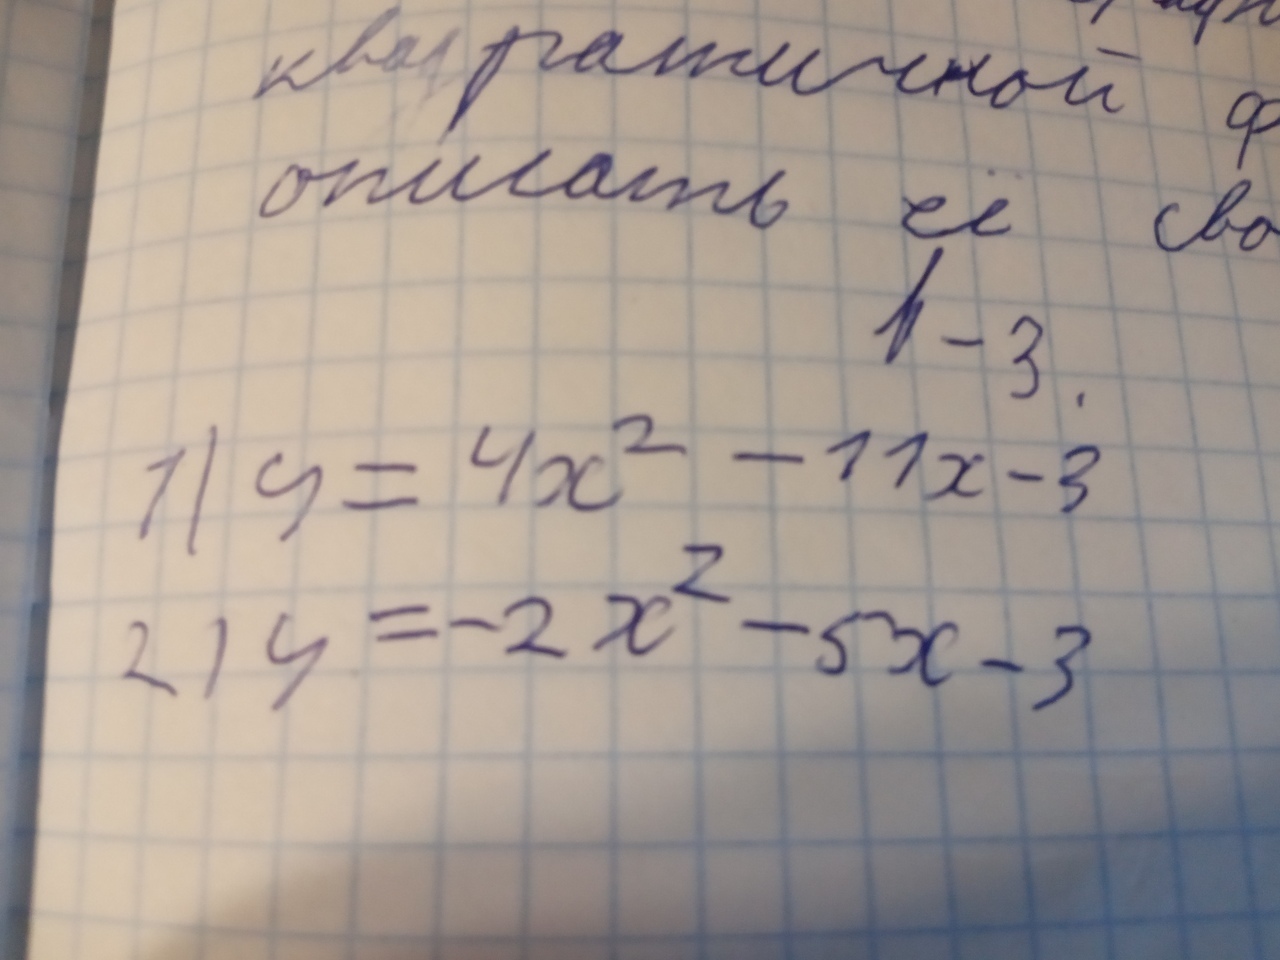 квадратичной
описать её
1-3.
1) y = 4x² - 11x - 3
2) y = -2x² - 5x - 3